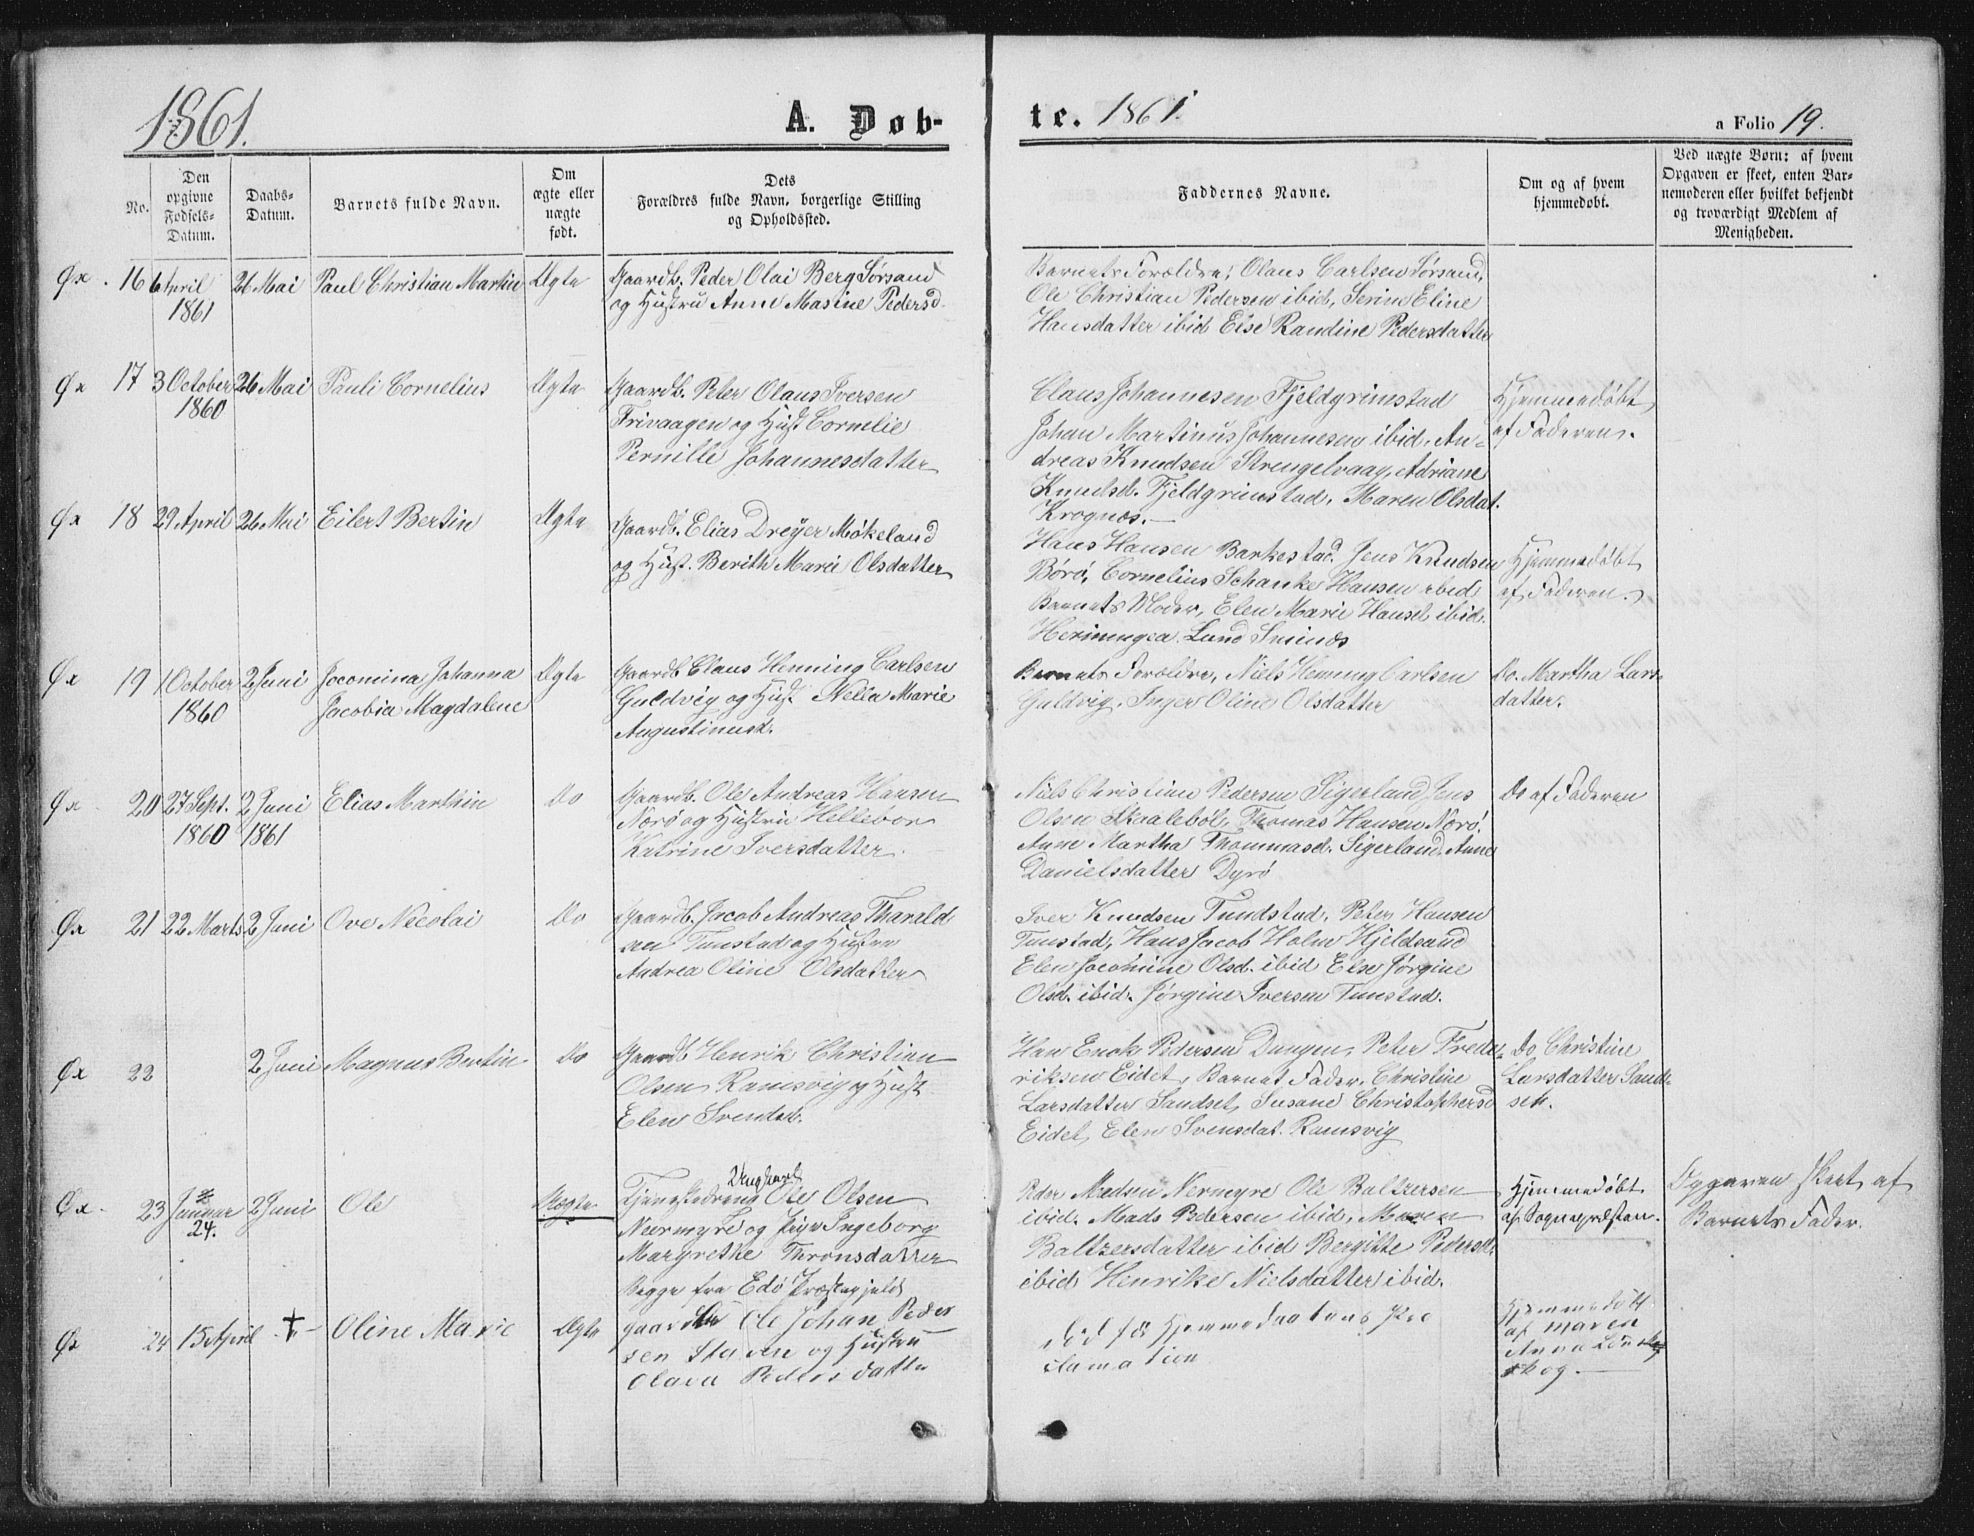 1861.
A. Døb-
te. 1861.
a Folio 19.
No.
Den
opgivne
Fødsels-
Datum.
Daabs-
Datum.
Barnets fulde Navn.
Om
ægte eller
uægte
født.
Dets
Forældres fulde Navn, borgerlige Stilling
og Opholdssted.
Faddernes Navne.
Om og af hvem
hjemmedøbt.
Ved uægte Børn: af hvem
Opgaven er skeet, enten Bar-
nemoderen eller hvilket bekjendt
og troværdigt Medlem af
Menigheden.
Øx. 16 6 April 26 Mai Paul Christian Martin Ægte
1861
Gaardb. Peder Olai Berg Sørsand
og Hustru Anne Masine Pedersd.
Barnets Forældre, Olaus Carlsen Sørsand,
Ole Christian Pedersen ibid, Serine Eline
Hansdatter ibid Else Randine Pedersdatter
Øx 17 3 October 26 Mai Pauli Cornelius Ægte
1860
Gaardb. Peter Olaus Iversen
Frivaagen og Hust. Cornelie
Pernille Johannesdatter
Claus Johannesen Fjeldgrimstad
Johan Martinus Johannesen ibid, An-
dreas Knudsen Strengelvaag, Adriane
Knudsd. Fjeldgrimstad, Maren Olsdat.
Krognæs.
Hjemmedøbt
af Faderen.
Øx 18 29 April 26 Mai Eilert Bertin Ægte
Gaardb. Elias Dreyer Møkeland
og Hust. Berith Marie Olsdatter
Hans Hansen Barkestad. Jens Knudsen
Børø, Cornelius Schanke Hansen ibid
Barnets Moder, Elen Marie Hansd. ibid.
Lund
Hjemmedøbt
af Faderen.
Øx 19 1 October 2 Juni Jocomina Johanna Ægte
1860 Jacobia Magdalene
Gaardb. Claus Henning Carlsen
Guldvig og Hust. Nella Marie
Augustinusd.
Barnets Forældre, Niels Hening Carlsen
Guldvig, Inger Oline Olsdatter
Do. Martha Lars-
datter.
Øx 20 27 Sept. 2 Juni Elias Marthin Do
1860 1861
Gaardb. Ole Andreas Hansen
Norø og Hustru Hellebor
Katrine Iversdatter.
Niels Christian Pedersen Sigerland, Jens
Olsen Skaalebøl, Thomas Hansen Norø.
Anne Martha Thommasd. Sigerland, Anne
Danielsdatter Dyrø
Do af Faderen
Øx 21 22 Marts 2 Juni Ove Nicolai Do
Gaardb. Jacob Andreas Tharald
sen Tunstad og Hustru
Andrea Oline Olsdatter
Iver Knudsen Tundstad, Peter Hansen
Tunstad, Hans Jacob Holm Hjeldsand
Elen Jacobine Olsd. ibid Else Jørgine
Olsd. ibid. Jørgine Iversen Tunstad.
Øx 22 2 Juni Magnus Bertin Do
Gaardb. Henrik Christian
Olsen Ramsvig og Hust.
Elen Svendsd.
Han Enok Pedersen Dungen, Peter Frede-
riksen Eidet, Barnet Fader, Christine
Larsdatter Sandset, Susane Christophersd
Eidet, Elen Svensdat. Ramsvig
Do Christine
Larsdatter Sand-
set.
Øx. 23 Januar 2 Juni Ole Uægte
24.
Ungkarl
Tjenestedreng Ole Olsen
Neermyre og Pige Ingeborg
Margrethe Thronsdatter
Begge fra Edø Præstegjeld
Peder Madsen Nermyre Ole Baltzersen
ibid. Mads Pedersen ibid, Maren
Baltzersdatter ibid Bergitte Pedersd.
ibid Henrike Nielsdatter ibid.
Hjemmedøbt
af Sognepræsten.
Opgaven skeet af
Barnets Fader.
Øx 24 15 April † Oline Marie Ægte
gaardbr Ole Johan Peder
sen Staven og Hustru
Olava Pedersdatter
død før Hjemmedaabens Pro
clamation
Hjemmedøbt
af Maren
Anna
skog.